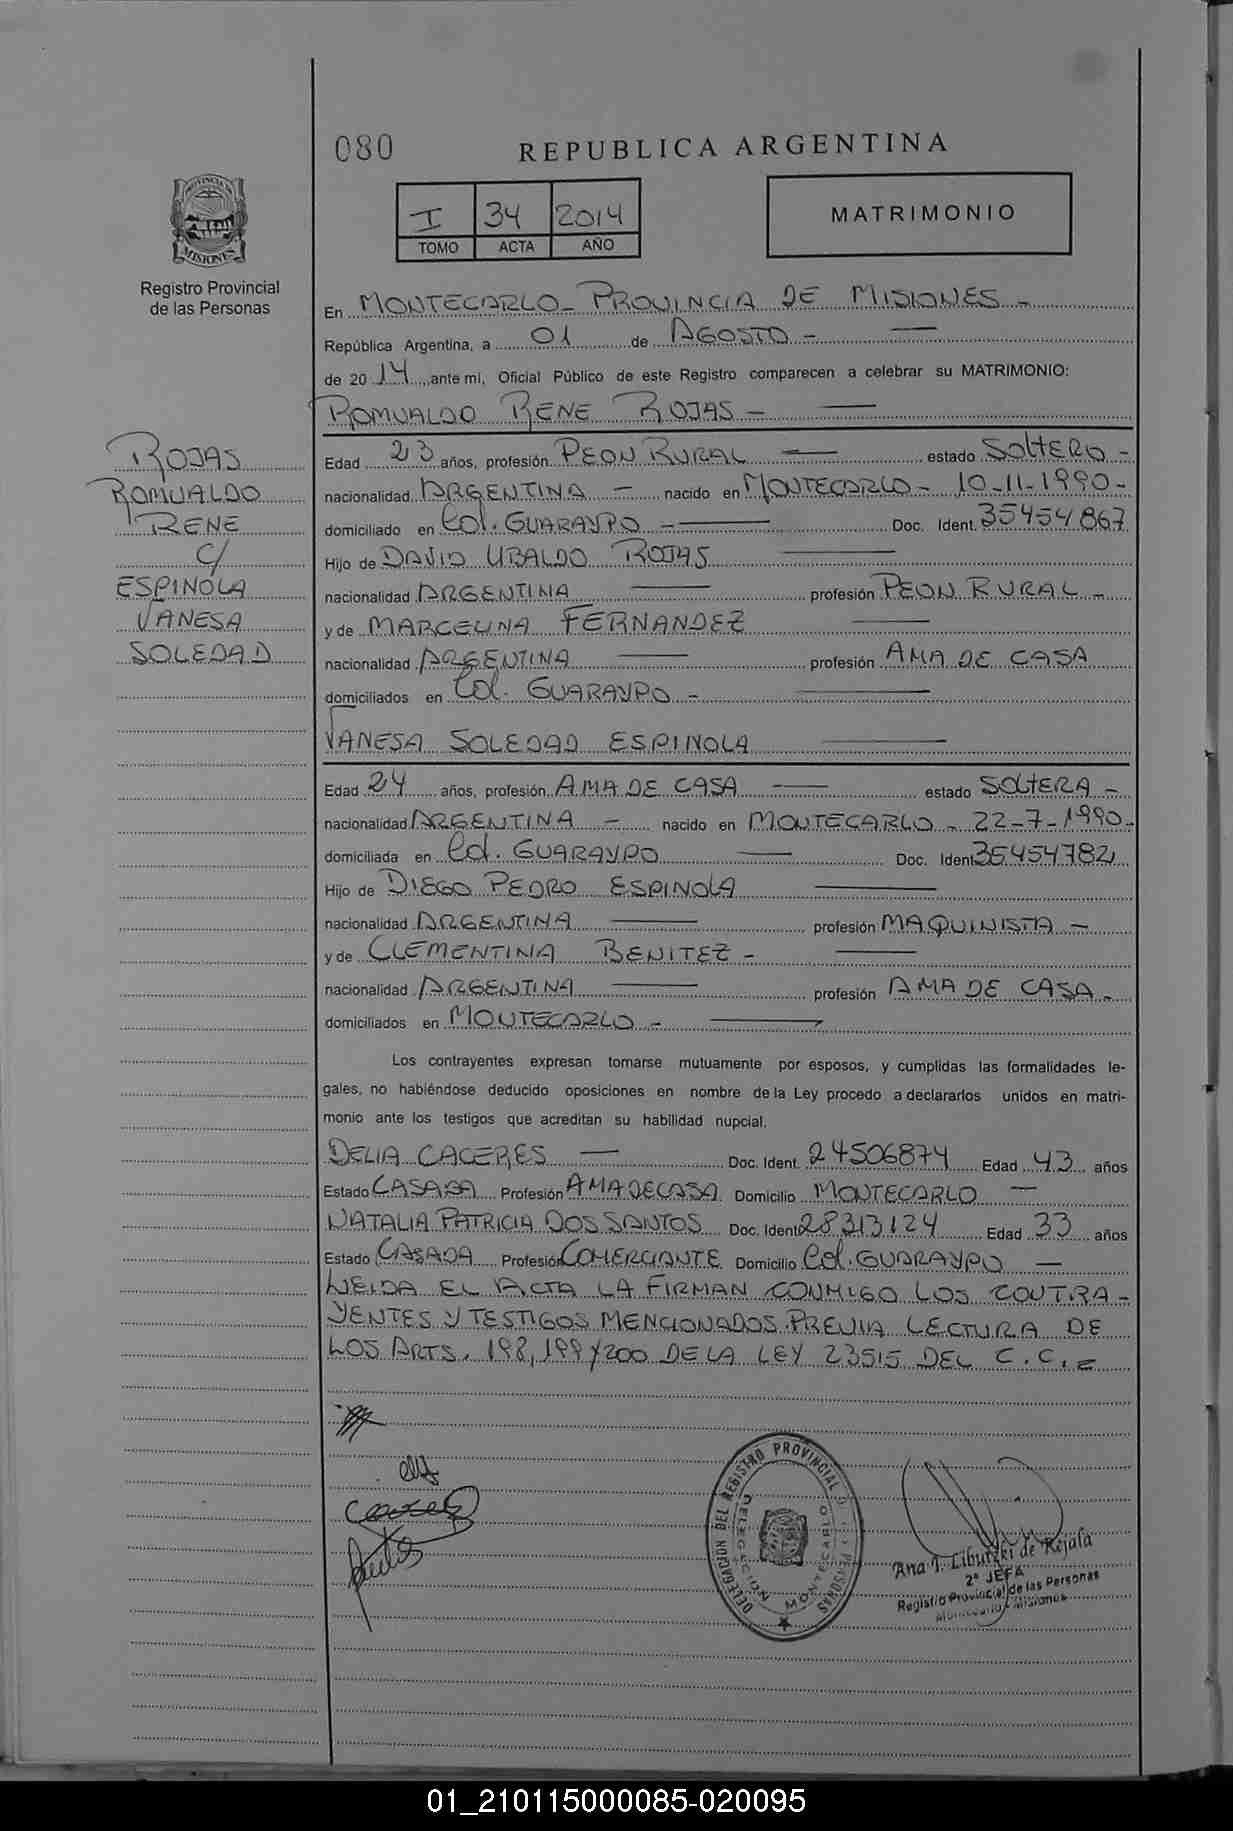 080
REPUBLICA ARGENTINA
I 34 2014
TOMO ACTA AÑO
MATRIMONIO
PROVINCIA DE
MISIONES
Registro Provincial
de las Personas
En MONTECARLO - PROVINCIA DE MISIONES -
República Argentina, a 01 de AGOSTO -
de 20 14 ante mi, Oficial Público de este Registro comparecen a celebrar su MATRIMONIO:
ROMUALDO RENE ROJAS -
ROJAS
ROMUALDO
RENE
C/
ESPINOLA
VANESA
SOLEDAD
Edad 23 años, profesión PEON RURAL estado SOLTERO -
nacionalidad ARGENTINA - nacido en MONTECARLO - 10-11-1990 -
domiciliado en Col. GUARAYPO - Doc. Ident. 35454867
Hijo de DAVID UBALDO ROJAS
nacionalidad ARGENTINA profesión PEON RURAL -
y de MARCELINA FERNANDEZ
nacionalidad ARGENTINA profesión AMA DE CASA
domiciliados en Col. GUARAYPO -
VANESA SOLEDAD ESPINOLA
Edad 24 años, profesión AMA DE CASA estado SOLTERA -
nacionalidad ARGENTINA - nacido en MONTECARLO - 22-7-1990 -
domiciliada en Col. GUARAYPO Doc. Ident 35454782
Hijo de DIEGO PEDRO ESPINOLA
nacionalidad ARGENTINA profesión MAQUINISTA -
y de CLEMENTINA BENITEZ -
nacionalidad ARGENTINA profesión AMA DE CASA -
domiciliados en MONTECARLO -
Los contrayentes expresan tomarse mutuamente por esposos, y cumplidas las formalidades le-
gales, no habiéndose deducido oposiciones en nombre de la Ley procedo a declararlos unidos en matri-
monio ante los testigos que acreditan su habilidad nupcial.
DELIA CACERES - Doc. Ident. 24506874 Edad 43 años
Estado CASADA Profesión AMA DE CASA Domicilio MONTECARLO -
NATALIA PATRICIA DOS SANTOS Doc. Ident 28313124 Edad 33 años
Estado CASADA Profesión COMERCIANTE Domicilio Col. GUARAYPO -
LEIDA EL ACTA LA FIRMAN CONMIGO LOS CONTRA-
YENTES Y TESTIGOS MENCIONADOS PREVIA LECTURA DE
LOS ARTS. 198, 199 y 200 DE LA LEY 23515 DEL C.C. =
DELEGACION DEL REGISTRO PROVINCIAL PERSONAS
DELEGACION MONTECARLO
Ana de Rejala
2ª JEFA
Registro Provincial de las Personas
Misiones
01_210115000085-020095